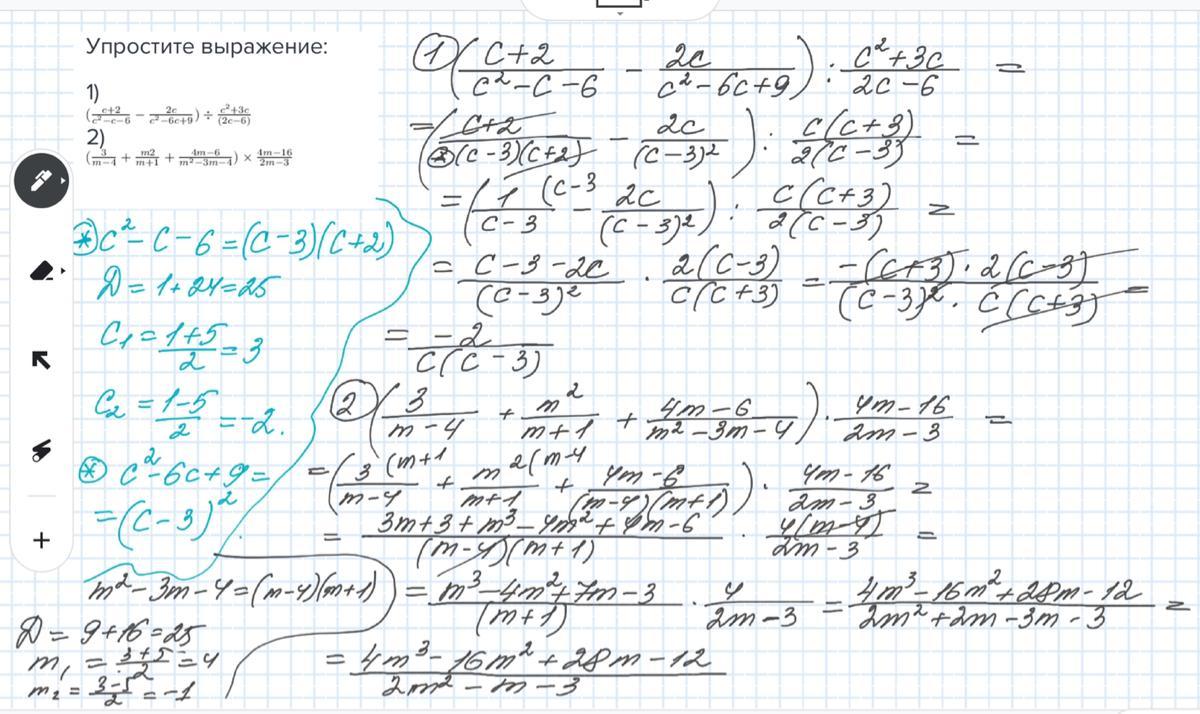 Упростите выражение:
1)
(\frac{c+2}{c^2-c-6} - \frac{2c}{c^2-6c+9}) ÷ \frac{c^2+3c}{(2c-6)}
2)
(\frac{3}{m-4} + \frac{m2}{m+1} + \frac{4m-6}{m^2-3m-4}) × \frac{4m-16}{2m-3}
⊛ c^2 - c - 6 = (c-3)(c+2)
Д = 1+24 = 25
c_1 = \frac{1+5}{2} = 3
c_2 = \frac{1-5}{2} = -2.
⊛ c^2 - 6c + 9 =
= (c-3)^2.
① (\frac{c+2}{c^2-c-6} - \frac{2c}{c^2-6c+9}) : \frac{c^2+3c}{2c-6} =
= (\frac{c+2}{⊛(c-3)(c+2)} - \frac{2c}{(c-3)^2}) : \frac{c(c+3)}{2(c-3)} =
= (\frac{1}{c-3}^{(c-3} - \frac{2c}{(c-3)^2}) : \frac{c(c+3)}{2(c-3)} =
= \frac{c-3-2c}{(c-3)^2} · \frac{2(c-3)}{c(c+3)} = \frac{-(c+3)·2(c-3)}{(c-3)^2·c(c+3)} =
= \frac{-2}{c(c-3)}
② (\frac{3}{m-4} + \frac{m^2}{m+1} + \frac{4m-6}{m^2-3m-4}) · \frac{4m-16}{2m-3} =
= (\frac{3}{m-4}^{(m+1} + \frac{m^2}{m+1}^{(m-4} + \frac{4m-6}{(m-4)(m+1)}) · \frac{4m-16}{2m-3} =
= \frac{3m+3+m^3-4m^2+4m-6}{(m-4)(m+1)} · \frac{4(m-4)}{2m-3} =
m^2-3m-4=(m-4)(m+1)
Д = 9+16=25
m_1 = \frac{3+5}{2} = 4
m_2 = \frac{3-5}{2} = -1
= \frac{m^3-4m^2+7m-3}{(m+1)} · \frac{4}{2m-3} = \frac{4m^3-16m^2+28m-12}{2m^2+2m-3m-3} =
= \frac{4m^3-16m^2+28m-12}{2m^2-m-3}